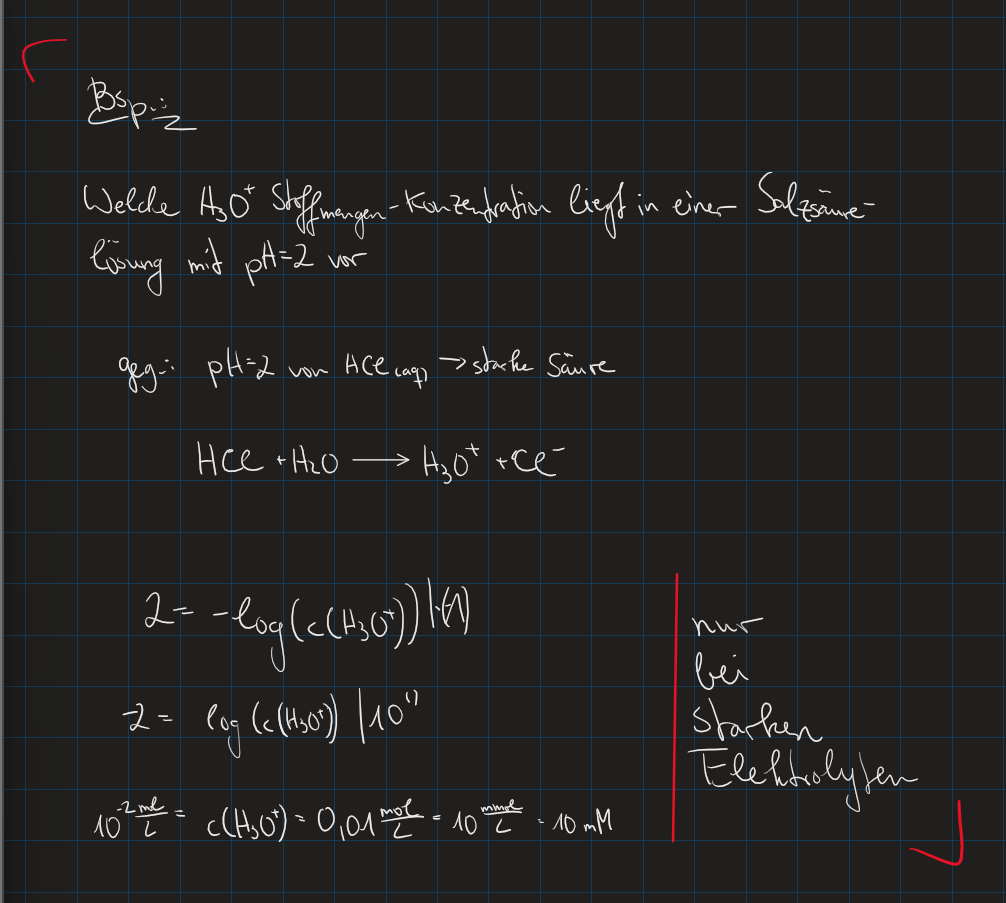 Bsp.:
Welche H₃O⁺ Stoffmengen-Konzentration liegt in einer Salzsäure-
lösung mit pH=2 vor
geg.: pH=2 von HCl(aq) → starke Säure
HCl + H₂O ⟶ H₃O⁺ + Cl⁻
2 = -log(c(H₃O⁺)) |·(-1)
-2 = log(c(H₃O⁺)) |10^()
10⁻² mol/L = c(H₃O⁺) = 0,01 mol/L = 10 mmol/L = 10 mM
nur
bei
starken
Elektrolyten